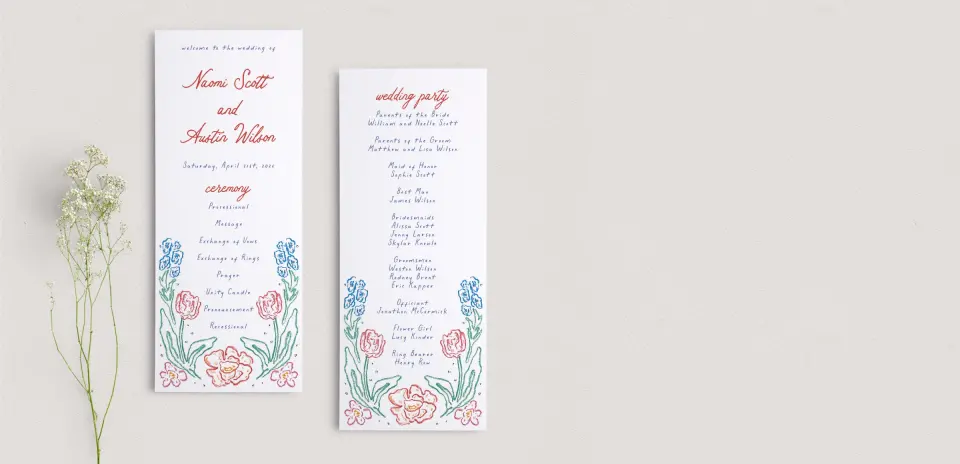 welcome to the wedding of
Naomi Scott
and
Austin Wilson
Saturday, April 21st, 20xx
ceremony
Processional
Message
Exchange of Vows
Exchange of Rings
Prayer
Unity Candle
Pronouncement
Recessional
wedding party
Parents of the Bride
William and Noelle Scott
Parents of the Groom
Matthew and Lisa Wilson
Maid of Honor
Sophie Scott
Best Man
James Wilson
Bridesmaids
Alissa Scott
Jenny Larsen
Skylar Keeule
Groomsmen
Weston Wilson
Rodney Brent
Eric Kapper
Officiant
Jonathan McCormick
Flower Girl
Lucy Kinder
Ring Bearer
Henry Row